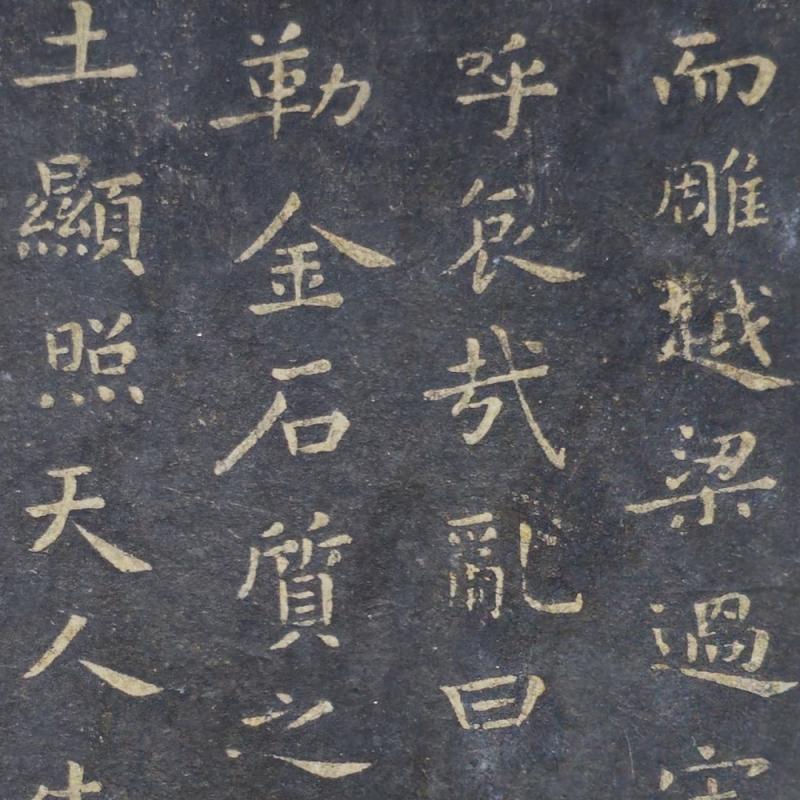 而雕越梁過
呼哀哉亂曰
勒金石質之
土顯照天人